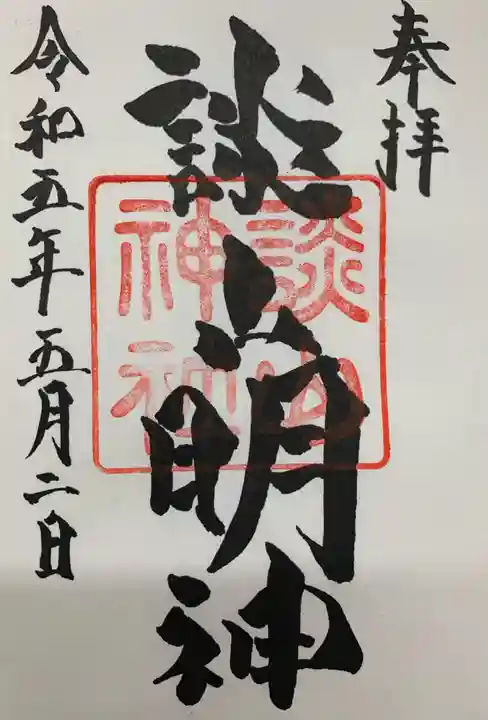 奉拝
談山明神
談山神社
令和五年五月二日